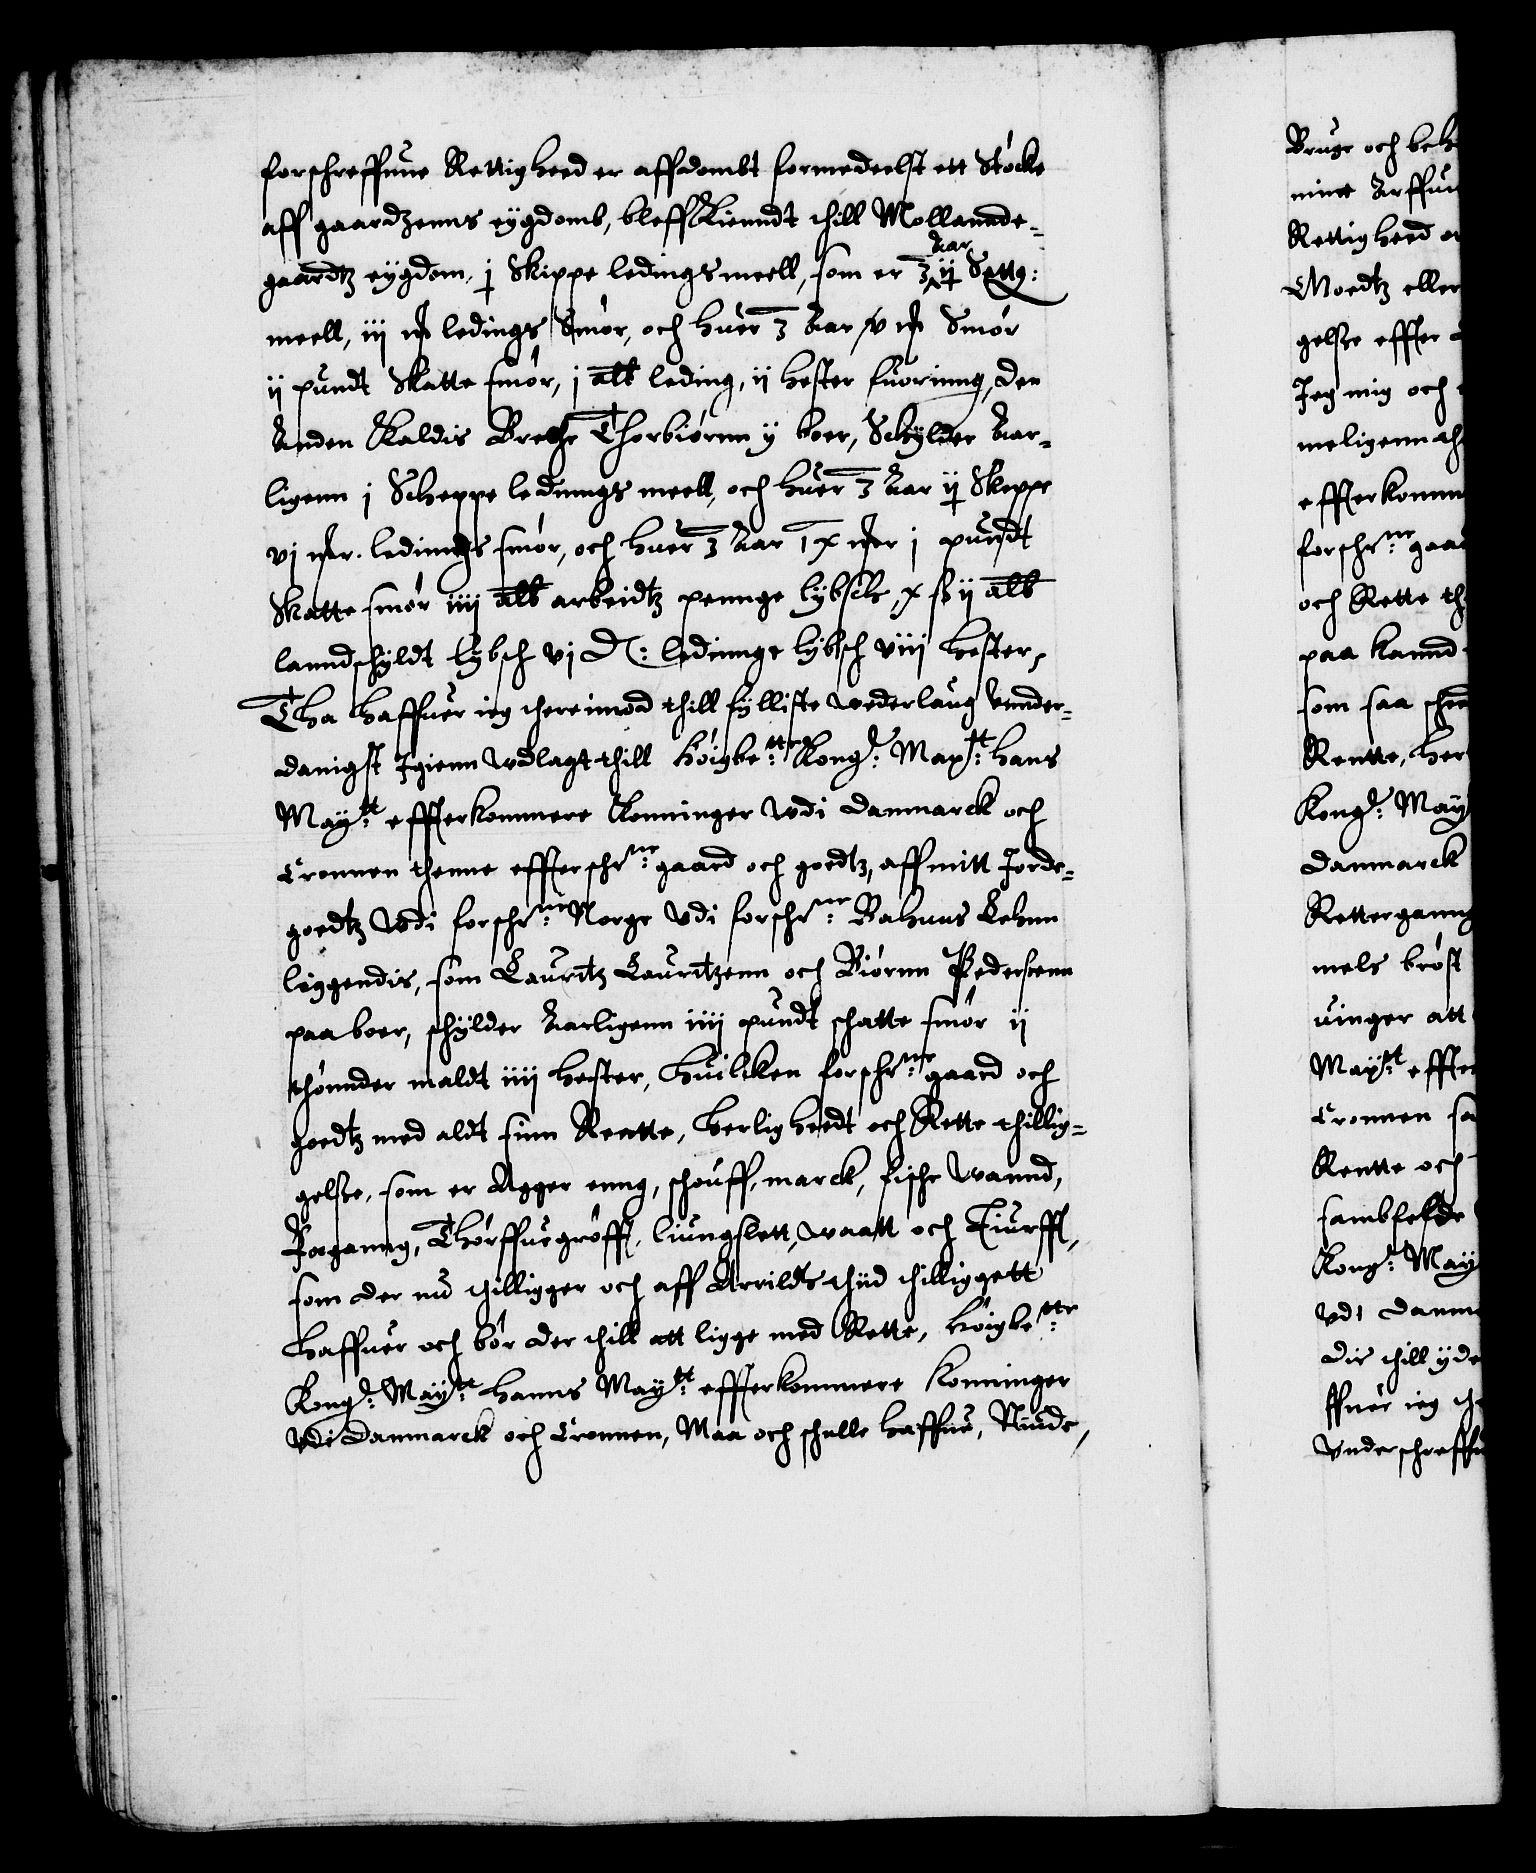 forschreffnne Rettigheed er affdombt formedeelst ett Støcke
aff gaardzenns eÿgdomb, bleff Kienndt thill Mollannde-
gaardtz eÿgdom, j Skippe ledings meell, som er 3 Aar ij Setts:
meell, iij mk ledings Smør, och huer 3 Aar v mk Smør
ij pundt Skatte smør, j alb leding, ij hester fuorinng, den
Anden Kaldis Brecke Thorbiørnn ÿ boer, Schÿlder Aar-
ligenn j Scheppe lednings meell, och huer 3 Aar ij Skeppe
vj mkr. ledinngs smør, och huer 3 Aar ix mkr j pundt
Skatte smør iiij alb arbeidtz pennge lÿbsck, x ß ij alb
lanndschÿldt lÿbsch vj D: ledinnge lÿbsch viij hester,
Tha haffuer ieg thereimod thill fÿlliste wederlaug Vnnder-
danigst Igienn wdlagt thill høigbe:tte Kong: May:tt hans
Maÿ:tt effterkommere Konninger wdi Danmarck och
Cronnen thenne effterschr:ne gaard och goedtz, aff mitt Jorde-
goedtz wdi forschr:ne Norge vdi forschr:ne Bahuus Lehnn
liggendis, som Lauritz Lauritzenn och Biørnn Pederssenn
paa boer, schÿlder Aarligenn iiij pundt schatte smør ij
thønnder maldt iiij hester, Huilcken forschr:ne gaard och
goedtz med aldt sinn Rentte, herligheedt och Rette thillig-
gelsse, som er Agger enng, schouff, marck, fische wannd,
Foeganng, Thørffuegrøfft, liungslett, waatt och Tiurfft,
som der nu thilligger och aff Arrilds thiid thilliggett
haffuer och bør der thill att ligge med Rette, høigbe:tte
Kong: Maÿ:tt hanns Maÿ:tt effterkommere Konninger
vdi Danmarck och Cronnen, Maa och schulle haffue, Niude,
Bruge och beh
minne Arffui
Rettigheed o
Moedtz eller
gelsse effter
Jeg mig och
meligenn th
effterkomm
forschr:ne gaa
och Rette th
paa kannd
som saa schee
Rentte, her
Kong: May
Danmarck
Rettergannng
mels brøst
uinger att
May:tt effter
Cronnen sa
Rentte och
sambfelde
Kong: Maÿ
vdi Danm
dis thill ÿde
ffuer ieg th
Vnderschreffu